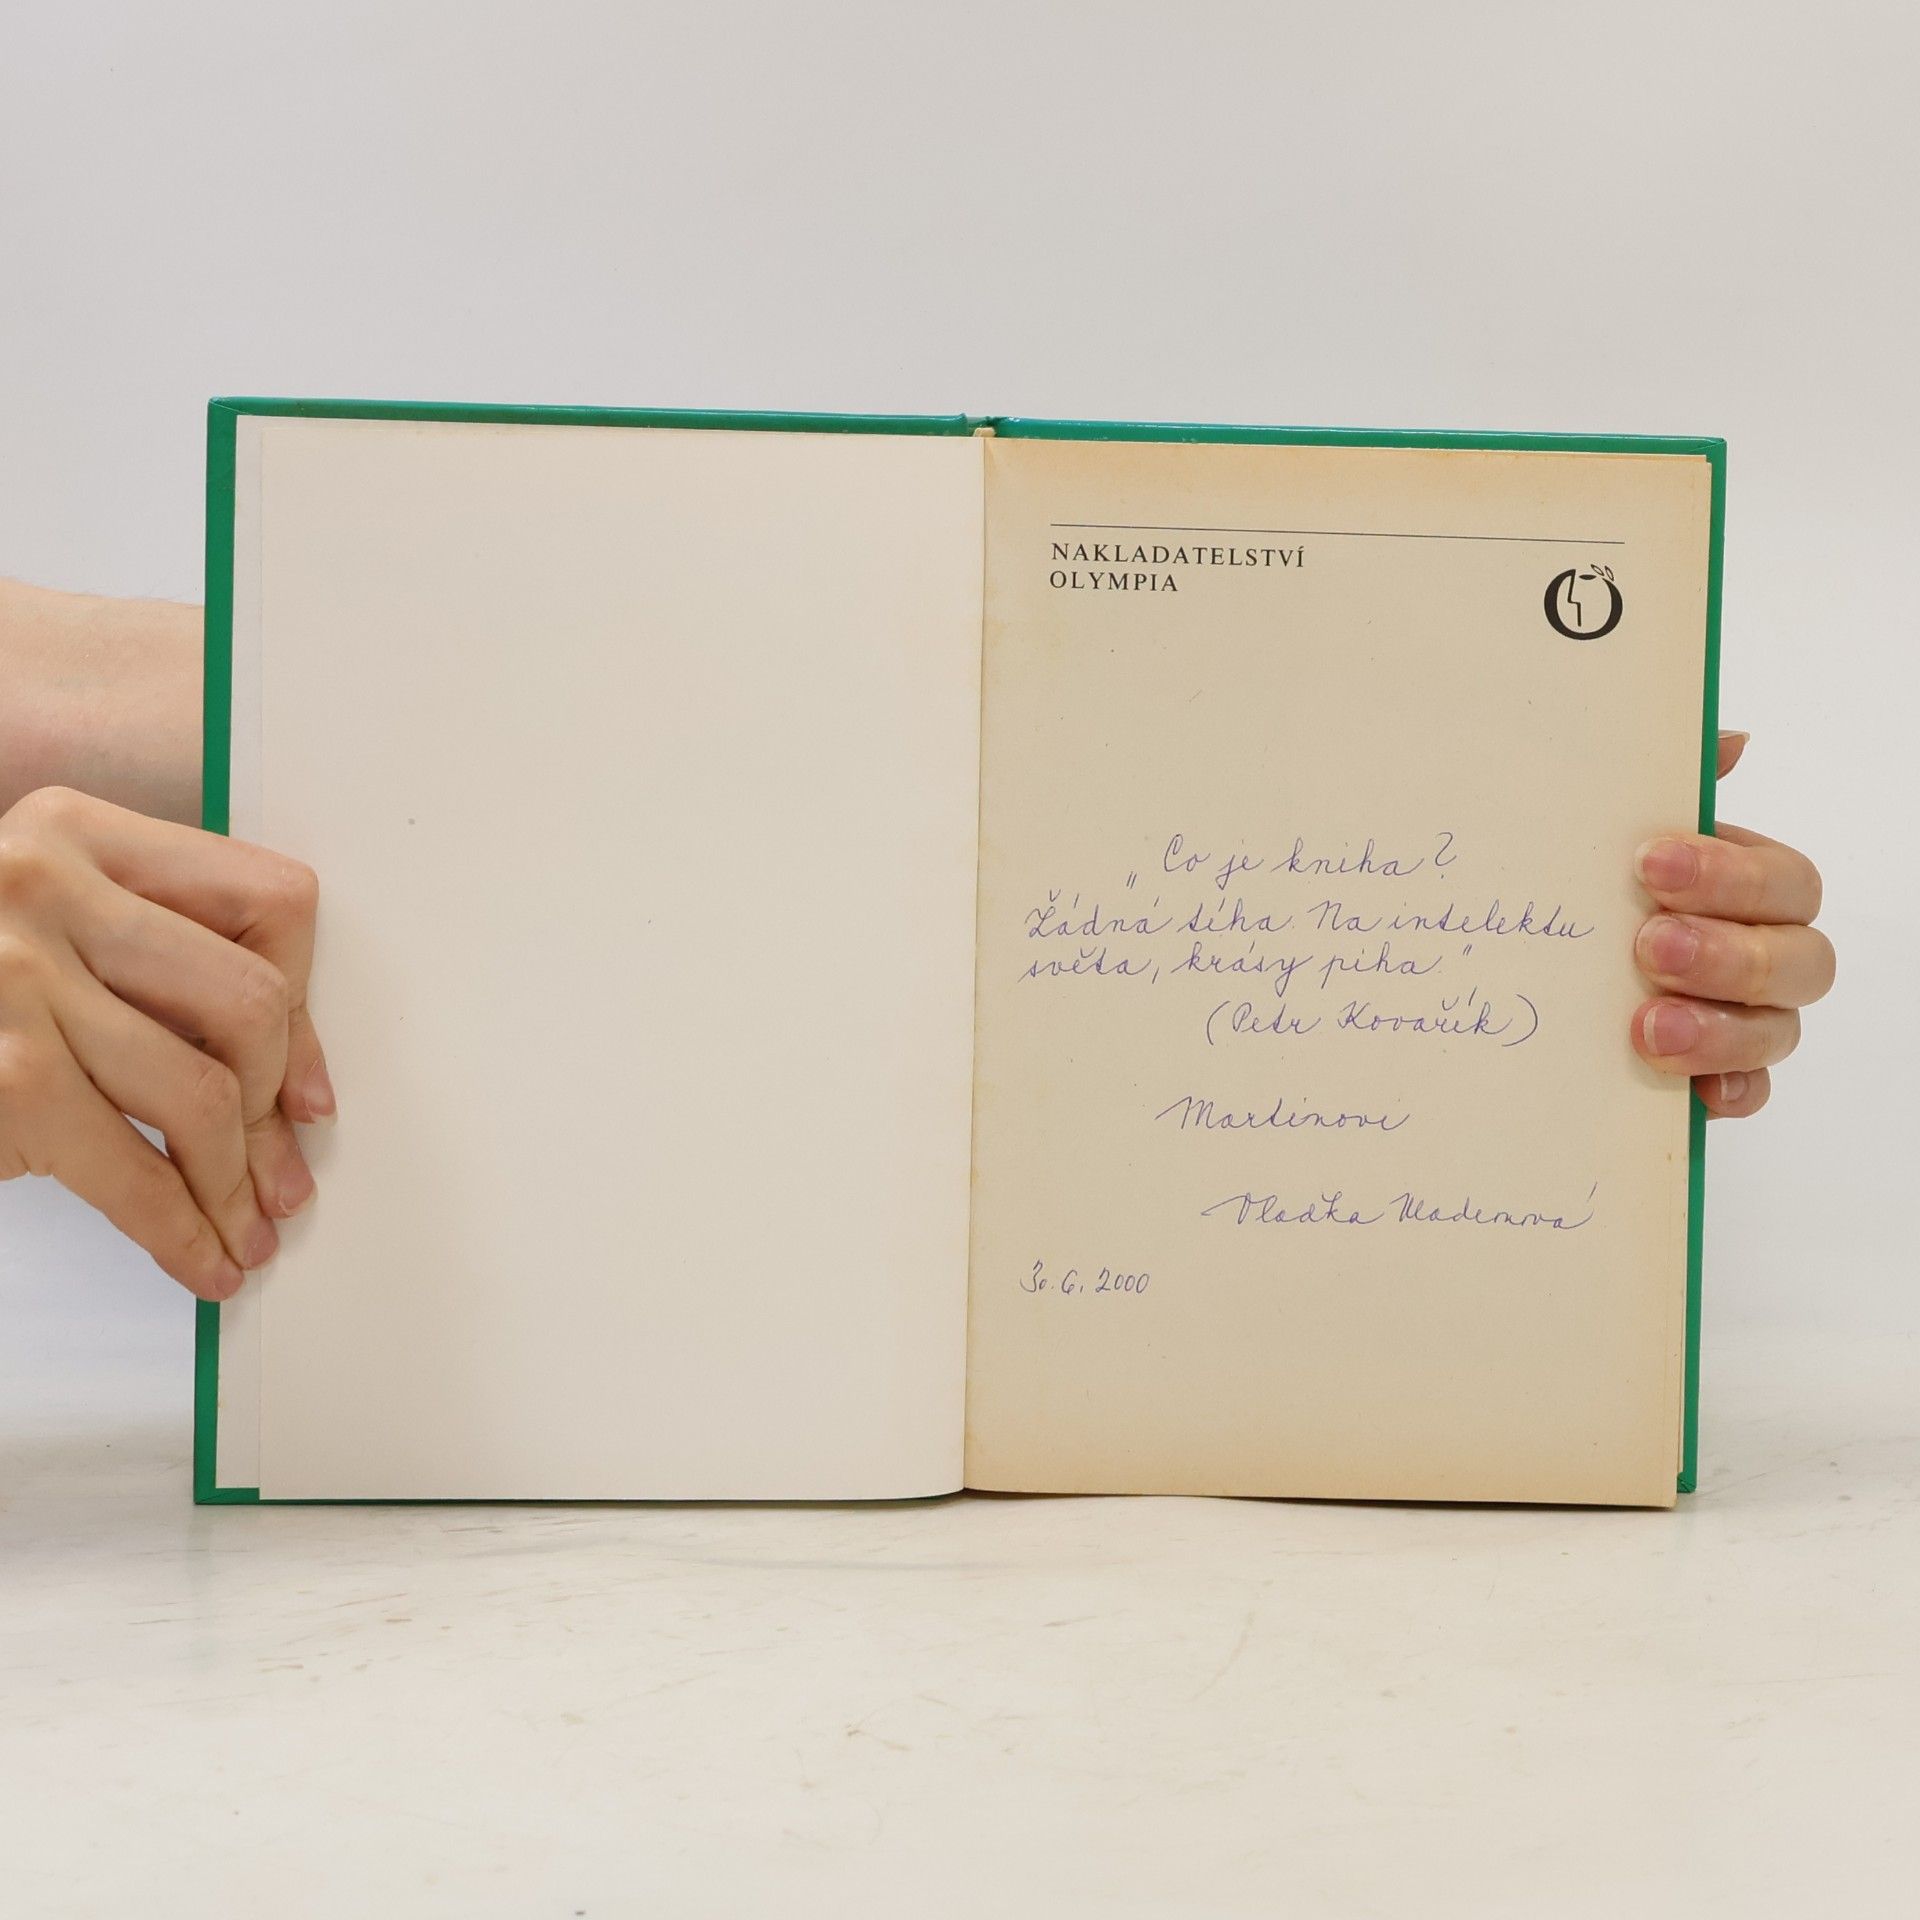 NAKLADATELSTVÍ
OLYMPIA
„Co je kniha?
Žádná tíha. Na intelektu
světa, krásy piha."
(Petr Kovařík)
Martinovi
Vlaďka
30. 6. 2000